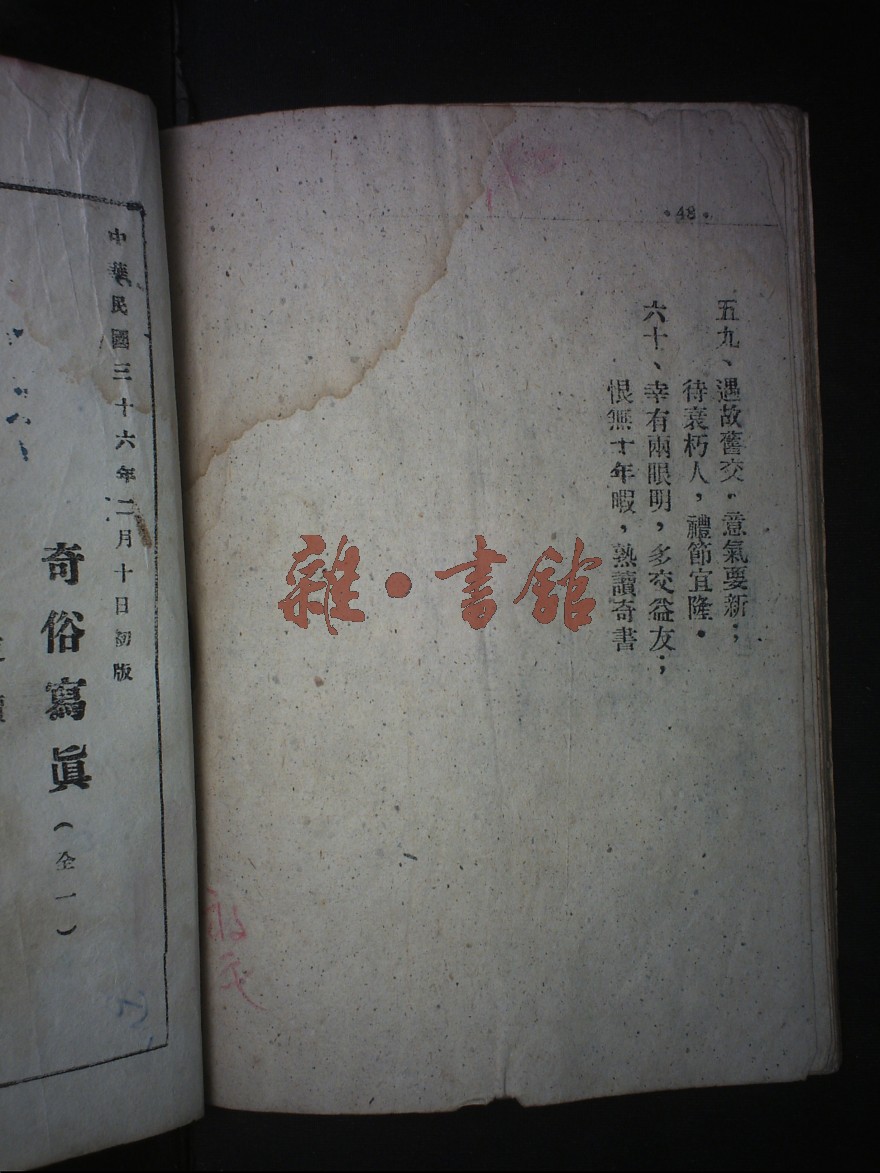 •48•
五九、遇故舊交，意氣要新；
待衰朽人，禮節宜隆•
六十、幸有兩眼明，多交益友；
恨無十年暇，熟讀奇書
雜•書館
中華民國三十六年二月十日初版
奇俗寫眞（全一）